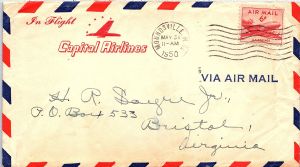 In Flight
Capital Airlines
MOUNDSVILLE
MAY 31
11-AM
1950
AIR MAIL
6¢
VIA AIR MAIL
H. R. Sayre Jr.,
P.O. Box 533
Bristol,
Virginia